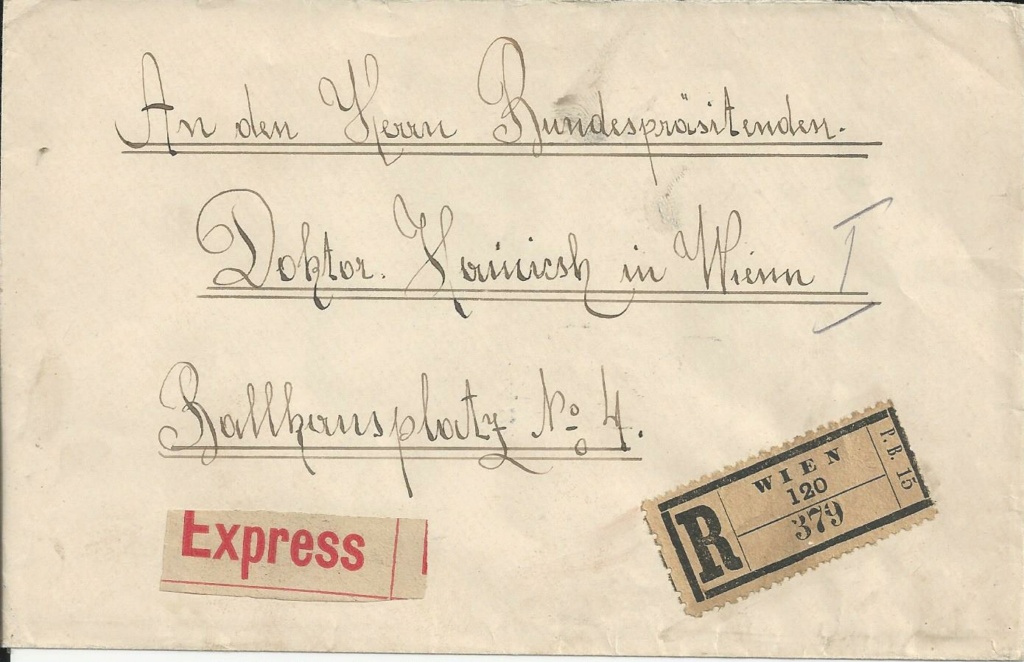 An den Herrn Bundespräsitenden.
Doktor. Hainisch in Wienn I
Ballhausplatz No 4.
Express
WIEN
120
379
R
P. B. 15